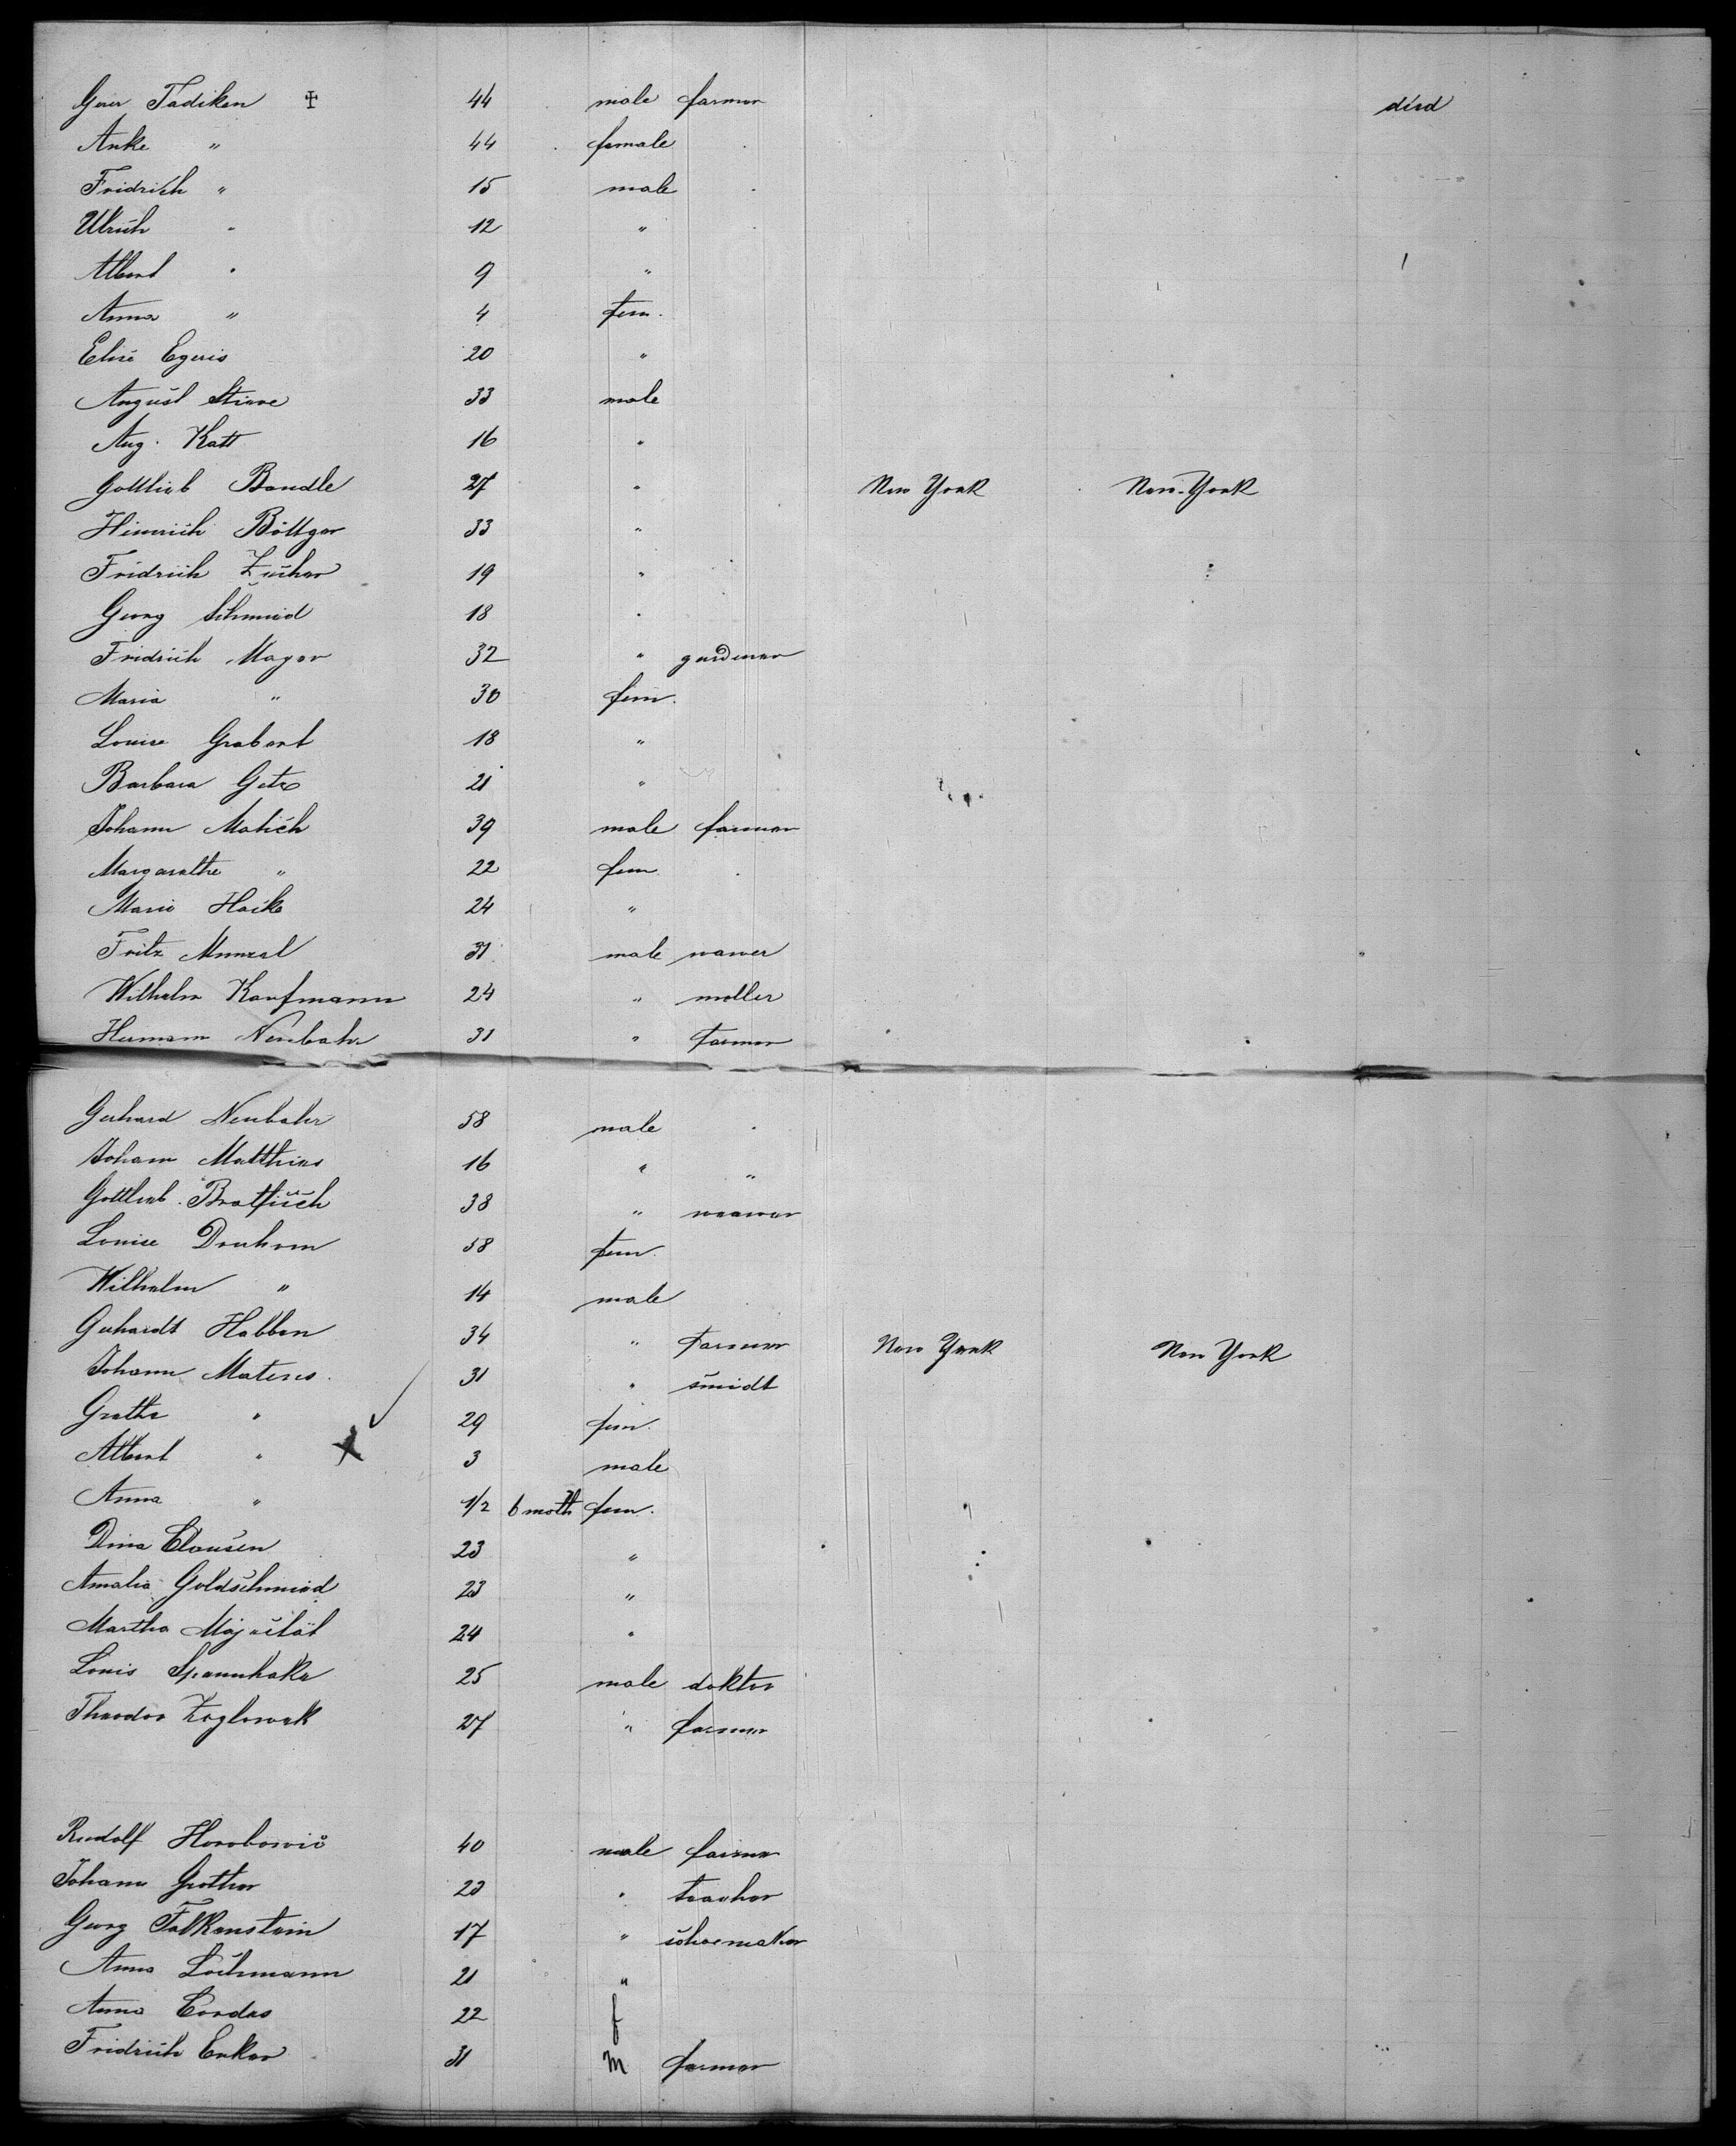 Tadiken ✝ 44 male farmer died
Anke " 44 female
Fridrich " 15 male
Ulrich " 12 "
Albert " 9 "
Anna " 4 fem.
Elise 20 "
August 33 male
Aug. Katt 16 "
Gottlieb Bandle 27 " New York New-York
Hinrich Böttger 33 "
Fridrich 19 "
Georg Schmied 18 "
Fridrich Mayer 32 " gardener
Maria " 30 fem.
Louise Grabert 18 "
Barbara Getz 21 "
Johann 39 male farmer
Margarethe " 22 fem.
Marie 24 "
Fritz 31 male
Wilhelm Kaufmann 24 " moller
Hermann Neubahr 31 " farmer
Gerhard Neubahr 58 male
Johann Matthias 16 " "
Gottlieb 38 "
Louise 58 fem.
Wilhelm " 14 male
Gerhardt Habben 34 " farmer New York New York
Johann 31 " smidt
Grethe " 29 fem.
Albert " X 3 male
Anna " 1/2 6 moth fem.
Dina Clausen 23 "
Amalia Goldschmied 23 "
Martha 24 "
Louis Spannhake 25 male doktor
Theodor 27 " farmer
Rudolf 40 male farmer
Johann 23 " teacher
Georg Falkenstein 17 " schoemaker
Anna 21 "
Anna Cordes 22 f
Fridrich 31 m farmer